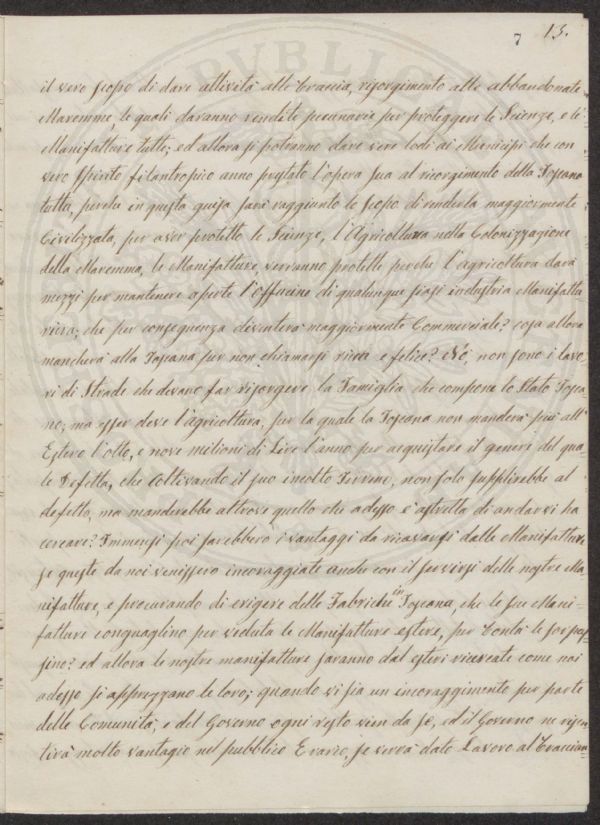 7 13.
il vero scopo di dare attività alle braccia, risorgimento alle abbandonate
Maremme le quali daranno rendite pecunarie per proteggere le Scienze, e le
Manifatture tutte; ed allora si potranno dare vere lodi ai Municipi che con
vero spirito filantropico anno prestato l'opera sua al risorgimento della Toscana
tutta, perche in questa guisa sarà raggiunto lo scopo di renderla maggiormente
Civilizzata, per aver protetto le Scienze, l'Agricoltura nella Colonizzazione
della Maremma, le Manifatture, verranno protette perche l'agricoltura darà
mezzi per mantenere aperte l'Officine di qualunque siasi industria Manifattu
riera; che per conseguenza diventerà maggiormente Commerciale? cosa allora
mancherà alla Toscana per non chiamarsi ricca e felice? Nò, non sono i lavo
ri di Strade che devano far risorgere la Famiglia che compone lo Stato Tosca-
no; ma esser deve l'agricoltura, per la quale la Toscana non manderà più all'
Estero l'otto, e nove milioni di Lire l'anno per acquistare il genere del qua-
le Difetta, che Coltivando il suo incolto Terreno, non solo supplirebbe al
difetto, ma manderebbe altrove quello che adesso è astretta di andarvi ha
cercare? Immensi poi sarebbero i vantaggi da ricavarsi dalle Manifatture
se queste da noi venissero incoraggiate anche con il servirsi delle nostre Ma
nifatture, e procurando di erigere delle Fabriche in Toscana, che le sue Mani-
fatture conguaglino per veduta le Manifatture estere, per bontà le sorpas
sino? ed allora le nostre manifatture saranno dal esteri ricercate come noi
adesso si apprezzano le loro; quando vi sia un incoraggimento per parte
delle Comunità, e del Governo ogni resto vien da se, ed il Governo ne risen
tirà molto vantagio nel pubblico Erario, se verrà dato Lavoro al braccian-